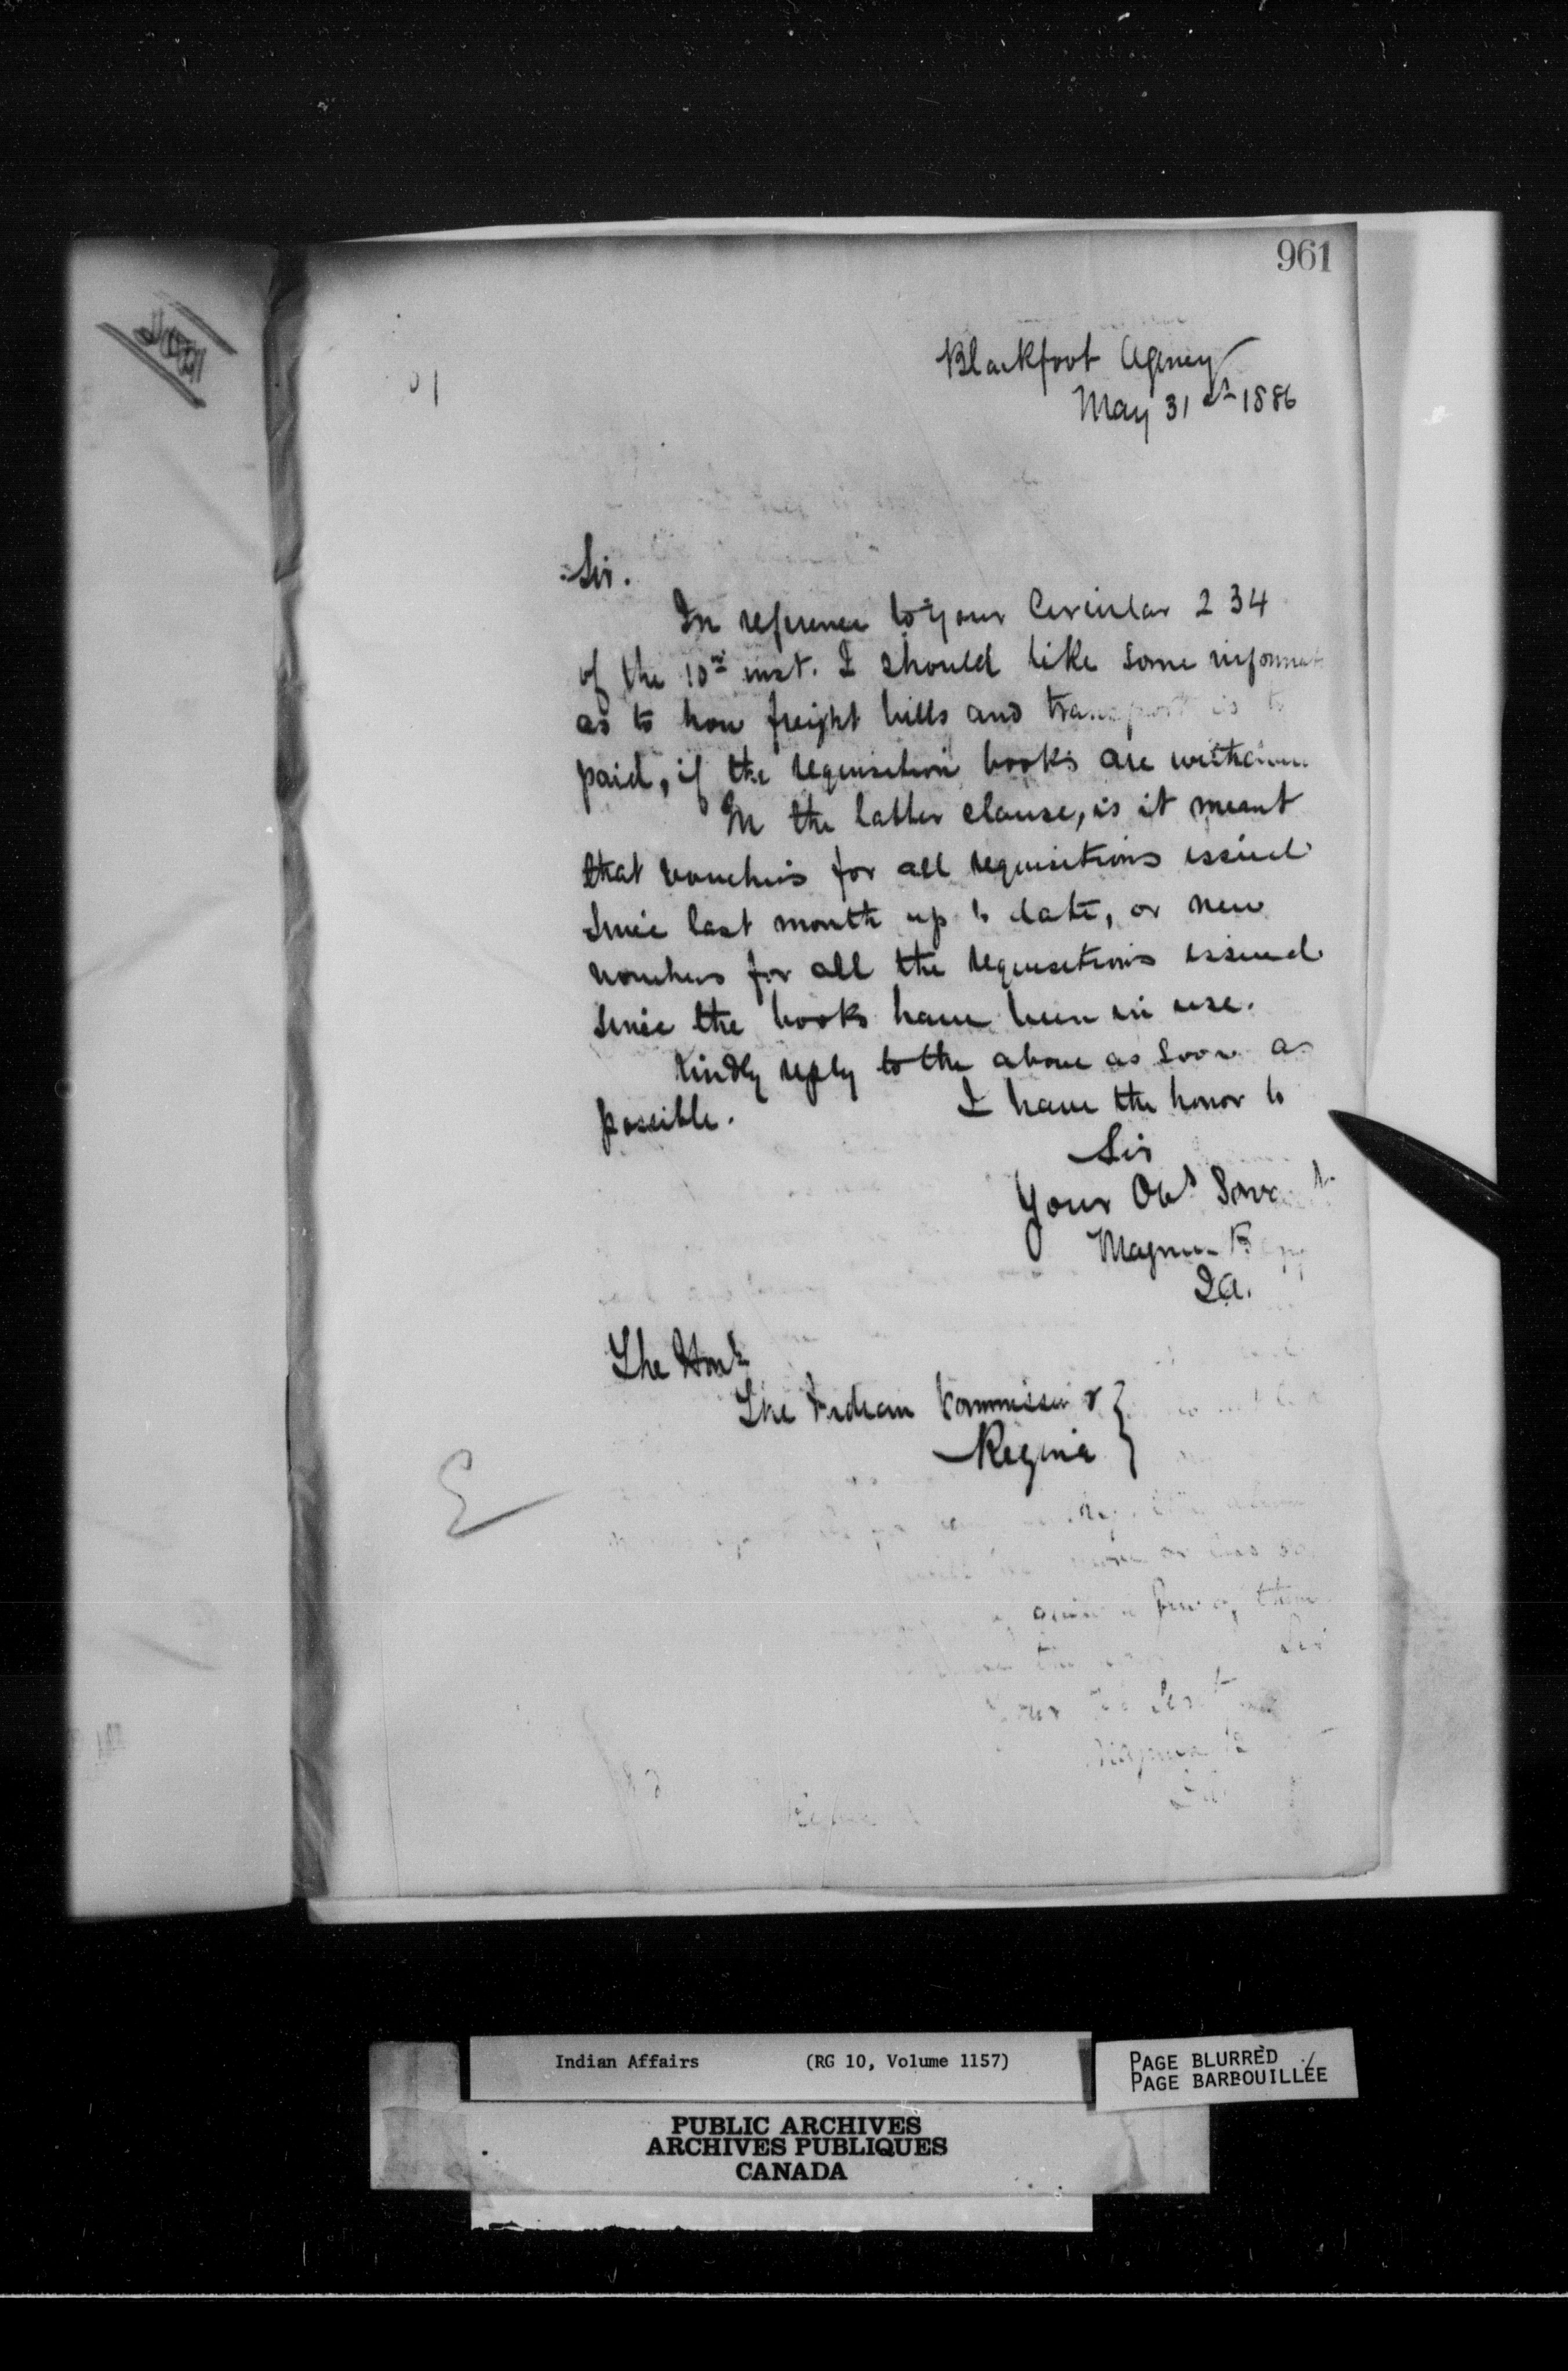 961
Blackfoot Agency
May 31st 1886
Sir.
In reference to your Circular 234
of the 10th inst. I should like some informat
as to how freight bills and transport is to
paid, if the requisition books are withdrawn
In the latter clause, is it meant
that vouchers for all requisitions issued
since last month up to date, or new
vouchers for all the requisitions issued
since the books have been in use.
Kindly reply to the above as soon as
possible.
I have the honor to
Sir
Your Obt Servant
Magnus Begg
I.A.
The Honle
The Indian Commissioner
Regina
Indian Affairs (RG 10, Volume 1157)
PAGE BLURRED
PAGE BARBOUILLÉE
PUBLIC ARCHIVES
ARCHIVES PUBLIQUES
CANADA